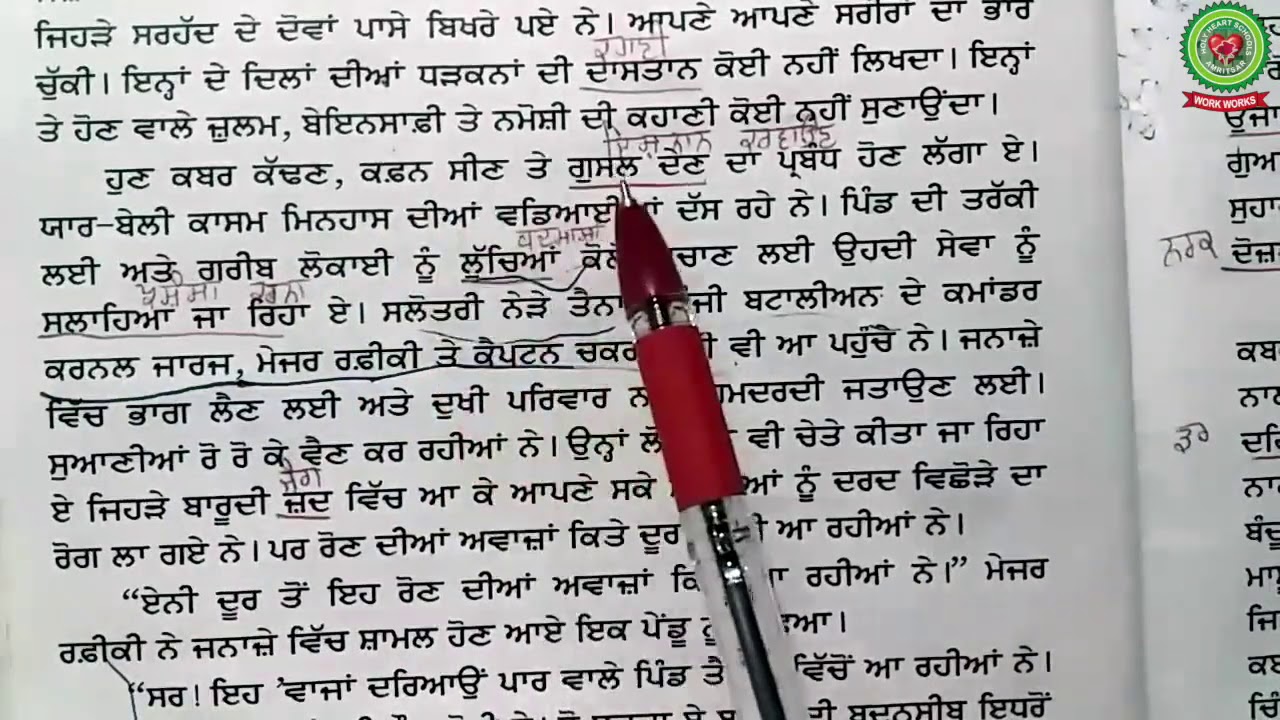 ਜਿਹੜੇ ਸਰਹੱਦ ਦੇ ਦੋਵਾਂ ਪਾਸੇ ਬਿਖਰੇ ਪਏ ਨੇ। ਆਪਣੇ ਆਪਣੇ ਸਰੀਰਾਂ ਦਾ ਭਾਰ
ਕਹਾਣੀ
ਚੁੱਕੀ। ਇਨ੍ਹਾਂ ਦੇ ਦਿਲਾਂ ਦੀਆਂ ਧੜਕਨਾਂ ਦੀ ਦਾਸਤਾਨ ਕੋਈ ਨਹੀਂ ਲਿਖਦਾ। ਇਨ੍ਹਾਂ
ਤੇ ਹੋਣ ਵਾਲੇ ਜ਼ੁਲਮ, ਬੇਇਨਸਾਫ਼ੀ ਤੇ ਨਮੋਸ਼ੀ ਦੀ ਕਹਾਣੀ ਕੋਈ ਨਹੀਂ ਸੁਣਾਉਂਦਾ।
ਇਸ਼ਨਾਨ ਕਰਵਾਉਣ
ਹੁਣ ਕਬਰ ਕੱਢਣ, ਕਫ਼ਨ ਸੀਣ ਤੇ ਗੁਸਲ ਦੇਣ ਦਾ ਪ੍ਰਬੰਧ ਹੋਣ ਲੱਗਾ ਏ।
ਯਾਰ-ਬੇਲੀ ਕਾਸਮ ਮਿਨਹਾਸ ਦੀਆਂ ਦੱਸ ਰਹੇ ਨੇ। ਪਿੰਡ ਦੀ ਤਰੱਕੀ
ਬਦਮਾਸ਼ਾਂ
ਲਈ ਅਤੇ ਗਰੀਬ ਲੋਕਾਈ ਨੂੰ ਲੁੱਚਿਆਂ ਲਈ ਉਹਦੀ ਸੇਵਾ ਨੂੰ
ਕਰਨਾ
ਸਲਾਹਿਆ ਜਾ ਰਿਹਾ ਏ। ਸਲੋਤਰੀ ਨੇੜੇ ਬਟਾਲੀਅਨ ਦੇ ਕਮਾਂਡਰ
ਕਰਨਲ ਜਾਰਜ, ਮੇਜਰ ਰਫ਼ੀਕੀ ਤੇ ਕੈਪਟਨ ਵੀ ਆ ਪਹੁੰਚੇ ਨੇ। ਜਨਾਜ਼ੇ
ਵਿੱਚ ਭਾਗ ਲੈਣ ਲਈ ਅਤੇ ਦੁਖੀ ਪਰਿਵਾਰ ਜਤਾਉਣ ਲਈ।
ਸੁਆਣੀਆਂ ਰੋ ਰੋ ਕੇ ਵੈਣ ਕਰ ਰਹੀਆਂ ਨੇ। ਉਨ੍ਹਾਂ ਵੀ ਚੇਤੇ ਕੀਤਾ ਜਾ ਰਿਹਾ
ਜੰਗ
ਏ ਜਿਹੜੇ ਬਾਰੂਦੀ ਜ਼ਦ ਵਿੱਚ ਆ ਕੇ ਆਪਣੇ ਸਕੇ ਨੂੰ ਦਰਦ ਵਿਛੋੜੇ ਦਾ
ਰੋਗ ਲਾ ਗਏ ਨੇ। ਪਰ ਰੋਣ ਦੀਆਂ ਅਵਾਜ਼ਾਂ ਕਿਤੇ ਦੂਰ ਆ ਰਹੀਆਂ ਨੇ।
“ਏਨੀ ਦੂਰ ਤੋਂ ਇਹ ਰੋਣ ਦੀਆਂ ਅਵਾਜ਼ਾਂ ਰਹੀਆਂ ਨੇ।” ਮੇਜਰ
ਰਫ਼ੀਕੀ ਨੇ ਜਨਾਜ਼ੇ ਵਿੱਚ ਸ਼ਾਮਲ ਹੋਣ ਆਏ ਇਕ ਪੇਂਡੂ
“ਸਰ! ਇਹ ’ਵਾਜਾਂ ਦਰਿਆਉਂ ਪਾਰ ਵਾਲੇ ਪਿੰਡ ਵਿੱਚੋਂ ਆ ਰਹੀਆਂ ਨੇ।
ਬਦਨਸੀਬ ਇਧਰੋਂ
ਨਰਕ
HOLY HEART SCHOOLS
AMRITSAR
WORK WORKS